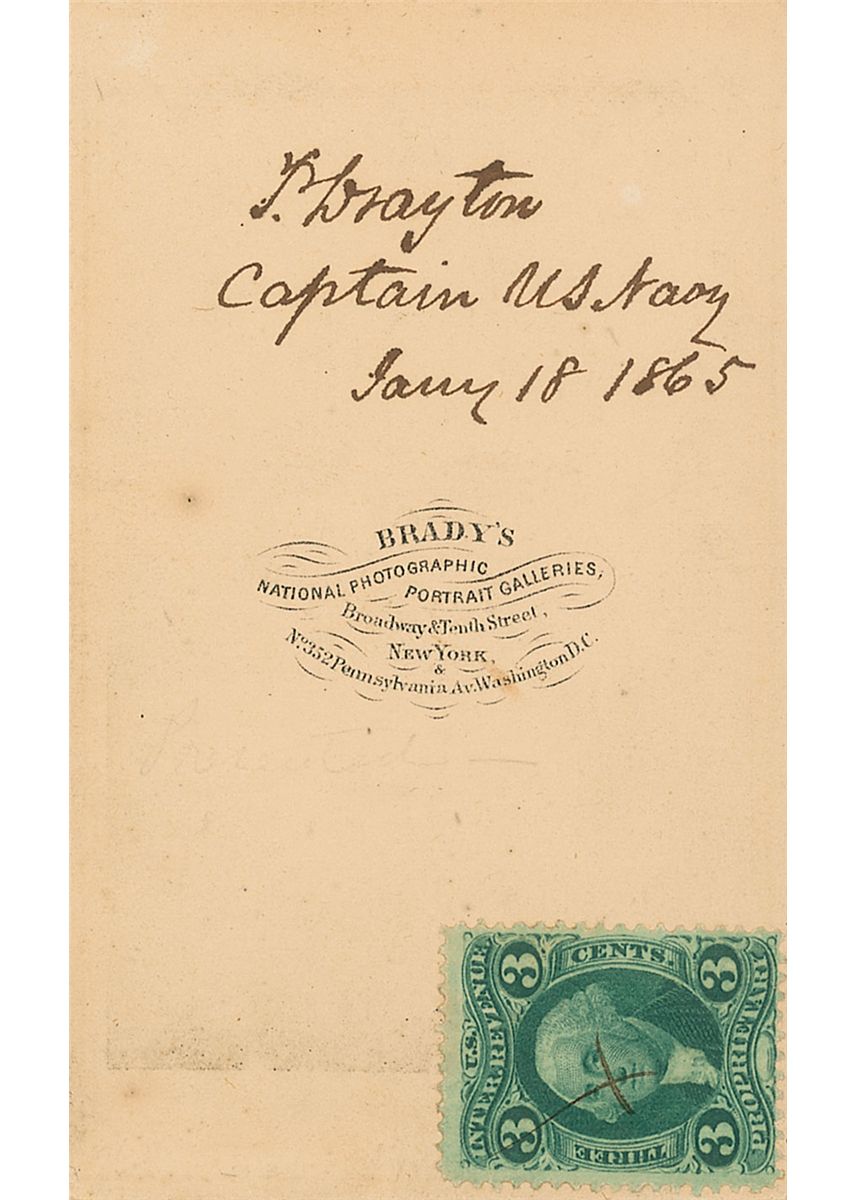 P. Drayton
Captain US Navy
Jany 18 1865
BRADY'S
NATIONAL PHOTOGRAPHIC
PORTRAIT GALLERIES,
Broadway & Tenth Street,
NEW YORK,
&
No. 352 Pennsylvania Av. Washington D.C.
U.S.
INTER. REVENUE
3 CENTS. 3
PROPRIETARY
3 THREE 3